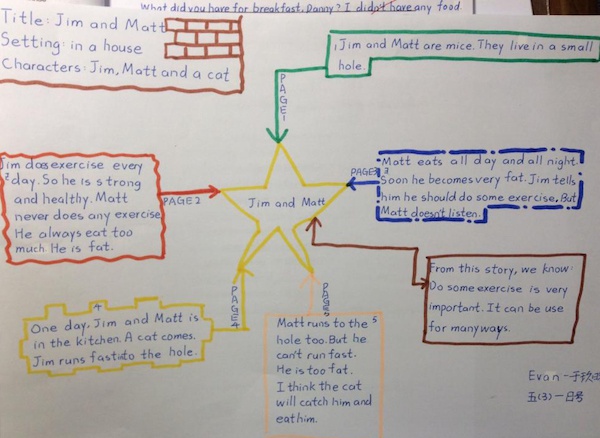 What did you have for breakfast, Danny? I didn't have any food
Title: Jim and Matt
Setting: in a house
Characters: Jim, Matt and a cat
1 Jim and Matt are mice. They live in a small
hole.
PAGE1
Jim does exercise every
2 day. So he is strong
and healthy. Matt
never does any exercise.
He always eat too
much. He is fat.
PAGE2
Jim and Matt
PAGE3
Matt eats all day and all night.
3 Soon he becomes very fat. Jim tells
him he should do some exercise. But
Matt doesn't listen.
4
One day, Jim and Matt is
in the kitchen. A cat comes.
Jim runs fast to the hole.
PAGE4
PAGE5
Matt runs to the 5
hole too. But he
can't run fast.
He is too fat.
I think the cat
will catch him and
eat him.
From this story, we know:
Do some exercise is very
important. It can be use
for many ways.
Evan 于
五(3)一日号